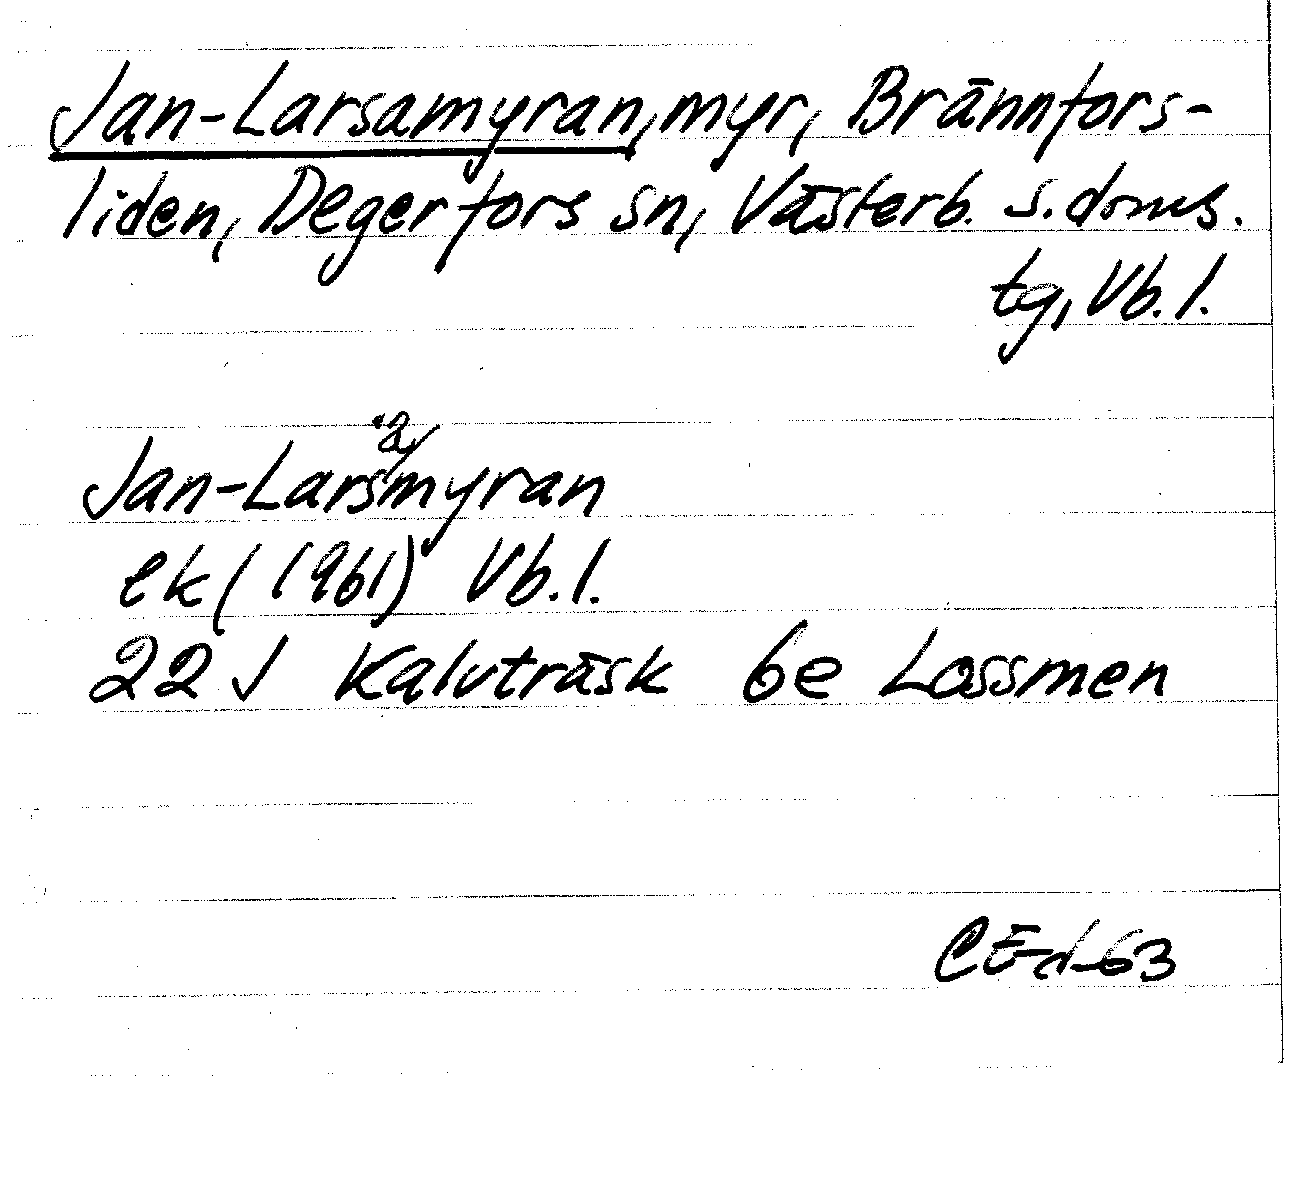 Jan-Larsamyran, myr, Brännfors-
liden, Degerfors sn, Västerb. s. doms.
tg, Vb. l.
Jan-Larsamyran
ek (1961) Vb. l.
22 J Kalvträsk 6e Lossmen
63